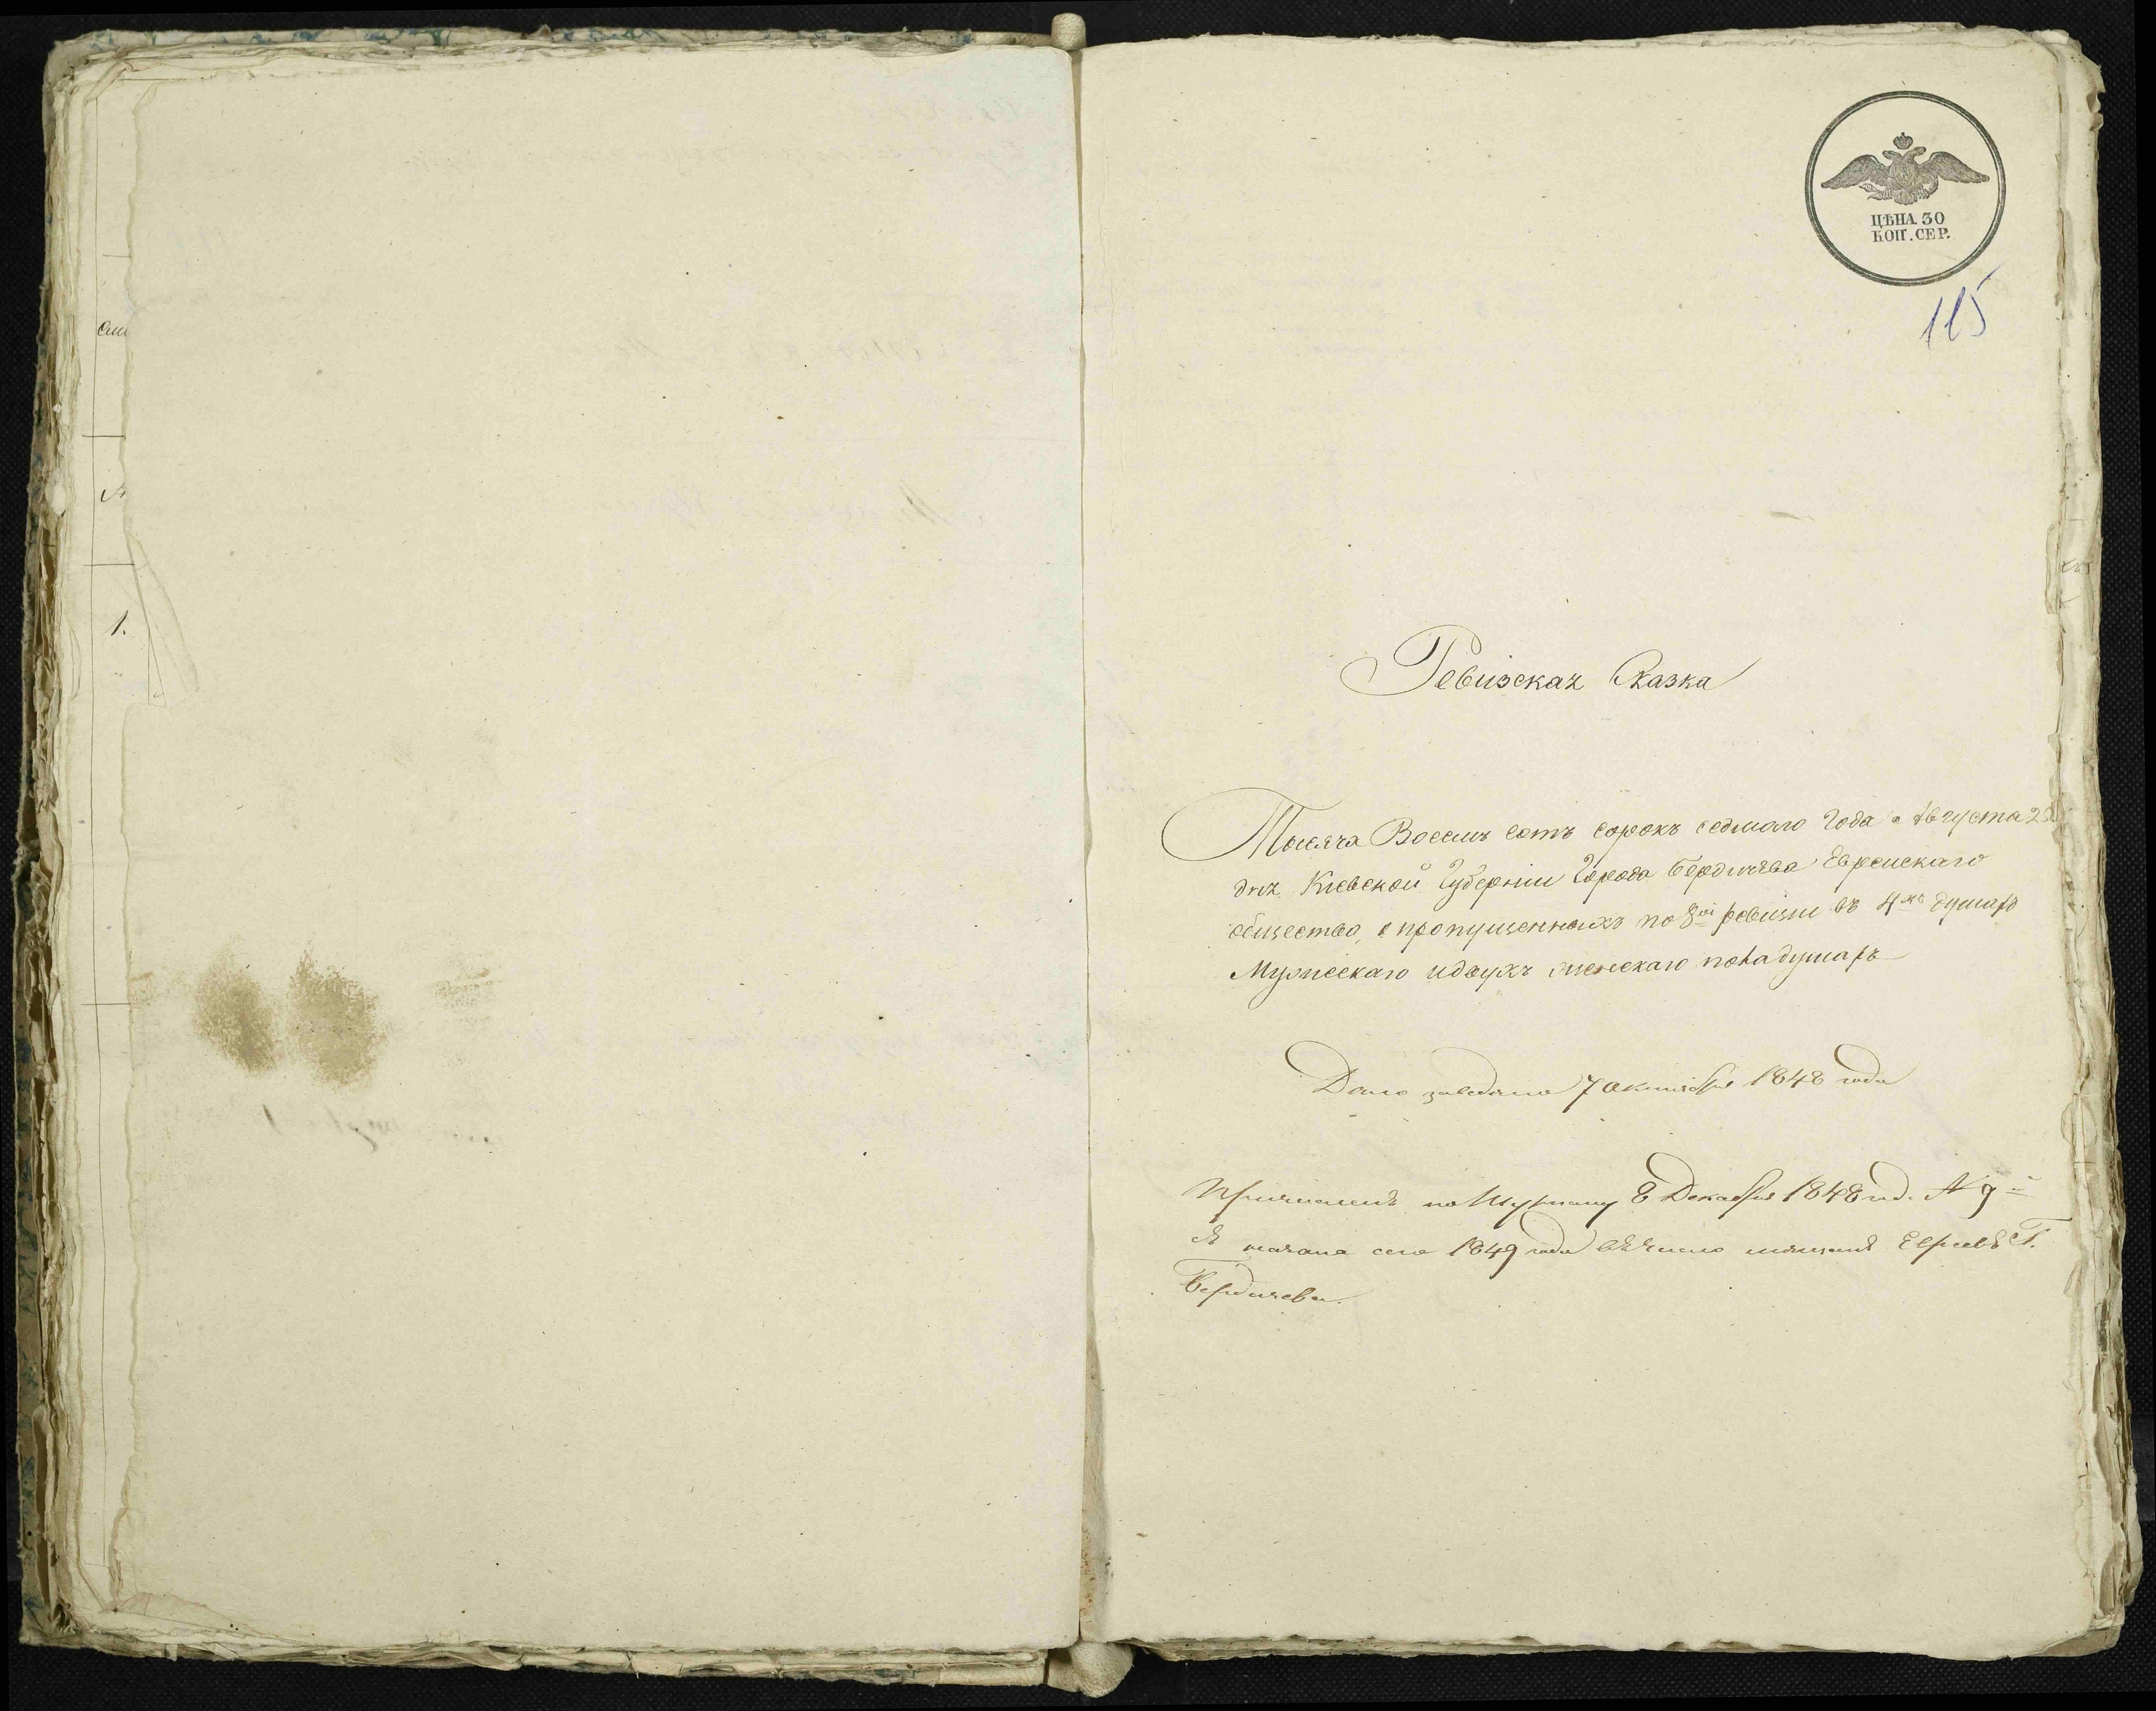 ЦѢНА 30
КОП. СЕР.
115
Ревизская Сказка
Тысяча Восемь сотъ сорокъ седмаго Года Августа
дня Кіевской Губерніи Города Бердичева Еврейскаго
общества, о пропущенныхъ по 8й ревизіи въ 4хъ душахъ
Мужескаго и двухъ женскаго пола душахъ
Дело заведено 7 октября 1848 года
Причислены по Журналу 8 Декабря 1848 год. № 9й
съ начала сего 1849 года въ число мещанъ Евреевъ Г.
Бердичева.
1.